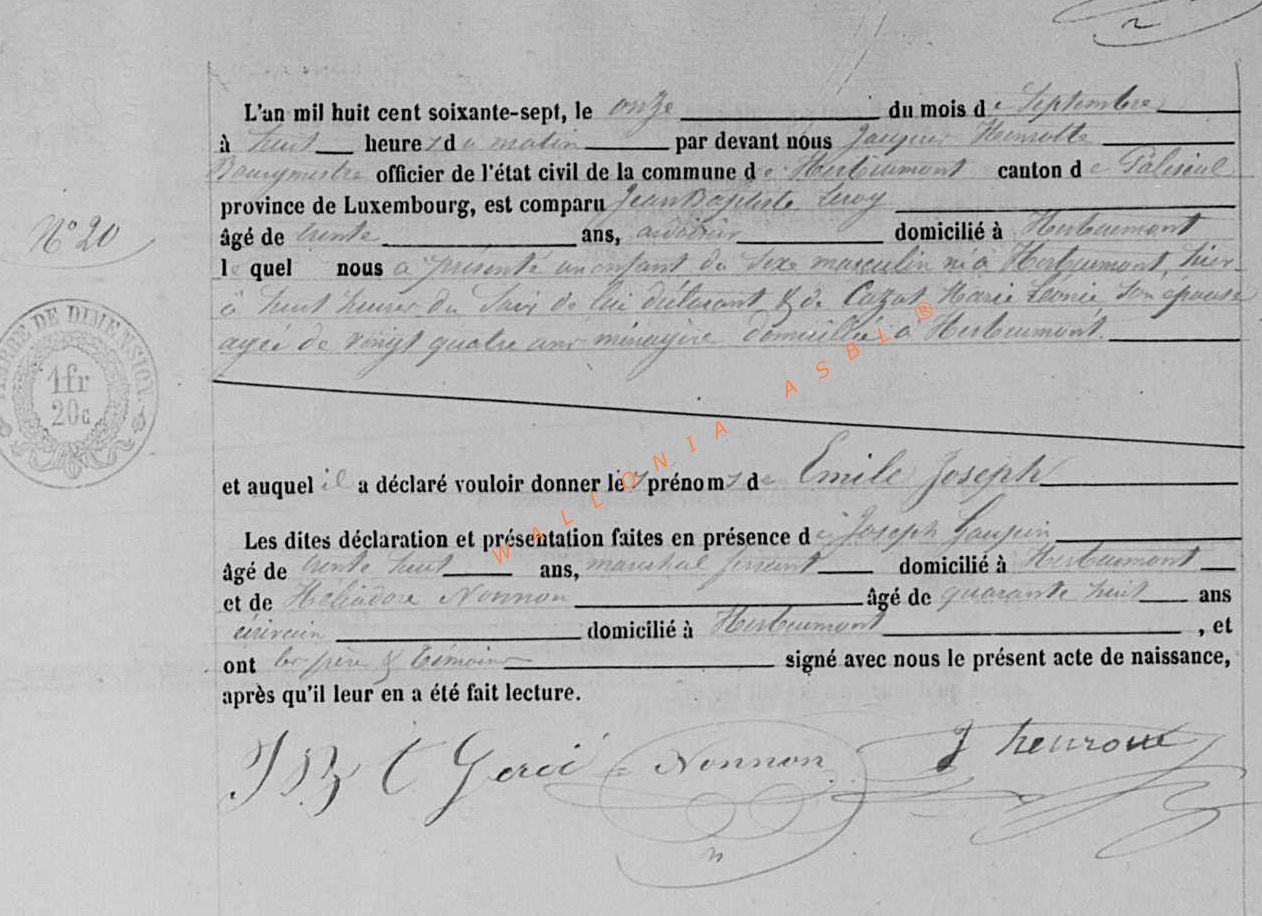 L'an mil huit cent soixante-sept, le onze du mois de Septembre
à huit heures du matin par devant nous Jacques Henrotte
Bourgmestre officier de l'état civil de la commune de Herbeumont canton de Paliseul
province de Luxembourg, est comparu Jean Baptiste Leroy
âgé de trente ans, ardoisier domicilié à Herbeumont
N° 20
le quel nous a présenté un enfant du sexe masculin né à Herbeumont, hier
à huit heures du soir de lui déclarant & de Cazat Marie Leonie son épouse
agée de vingt quatre ans ménagère domiciliée à Herbeumont.
TIMBRE DE DIMENSION
1fr
20c
et auquel il a déclaré vouloir donner les prénoms de Emile Joseph
Les dites déclaration et présentation faites en présence de Joseph
âgé de trente huit ans, marechal ferrant domicilié à Herbeumont
et de Héliodore Nonnon âgé de quarante huit ans
écrivain domicilié à Herbeumont, et
ont les père & témoins signé avec nous le présent acte de naissance,
après qu'il leur en a été fait lecture.
Nonnon J henrotte
WALLONIA ASBL ®